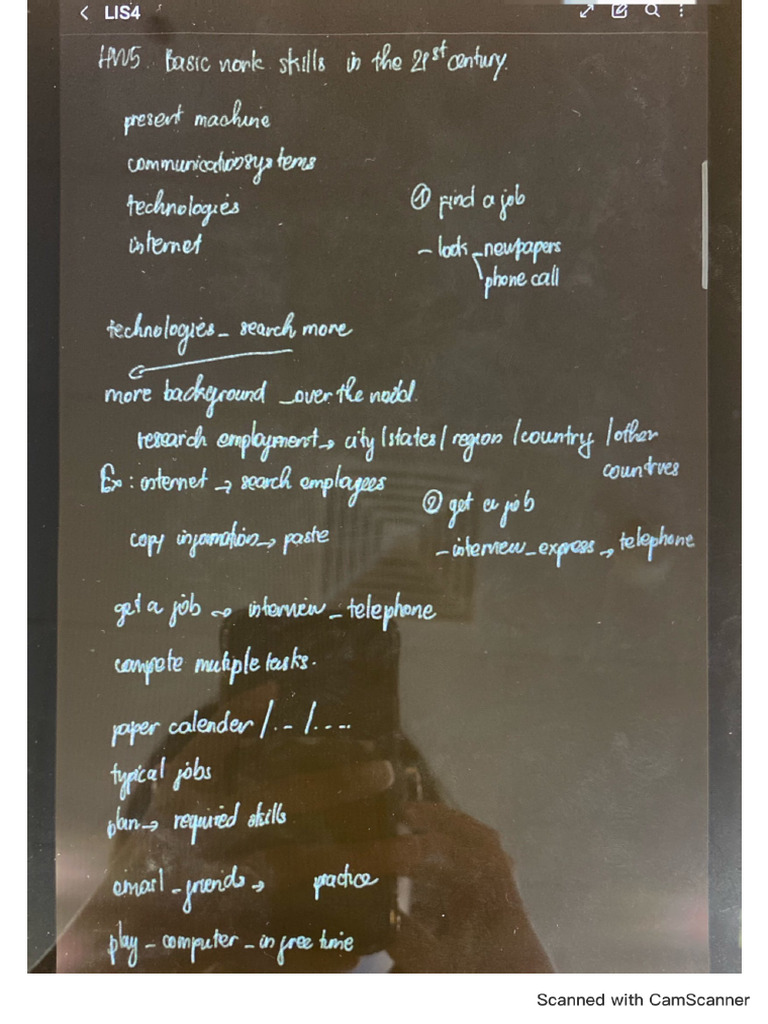 LIS4
HW5. Basic work skills in the 21st century.
present machine
communication systems
technologies
internet
① Find a job
- look - newpapers
phone call
technologies - search more
more background - over the
research employment → city / states / region / country / other
countries
Ex: internet → search employees
copy information → paste
② get a job
- interview - express → telephone
get a job → interview - telephone
multiple tasks.
paper calender / .. - / ....
typical jobs
plan → required skills
email - friends → practice
play - computer - in free time
Scanned with CamScanner